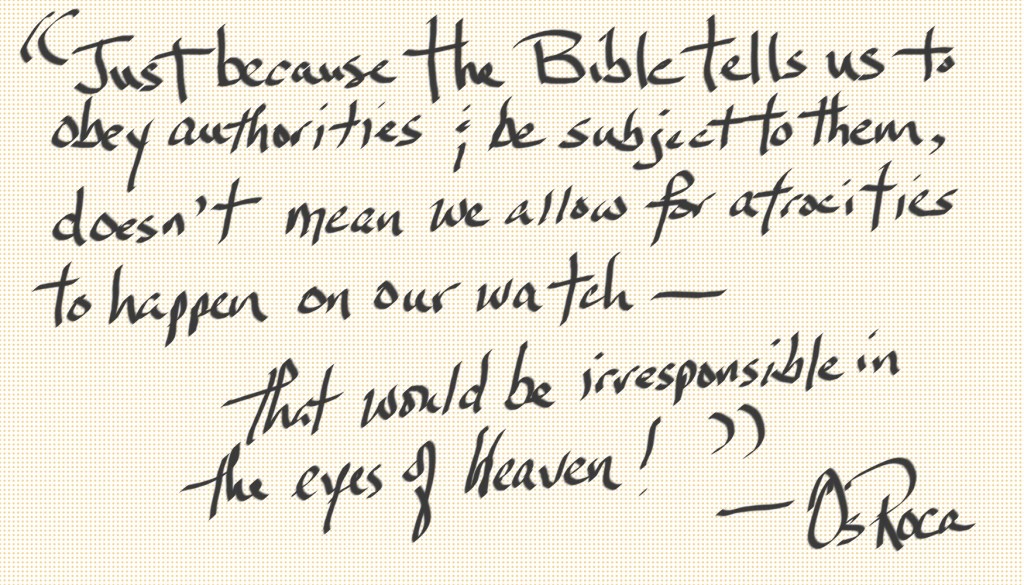 “Just because the Bible tells us to
obey authorities ; be subject to them,
doesn't mean we allow for atrocities
to happen on our watch —
that would be irresponsible in
the eyes of Heaven! ”
— Os Roca